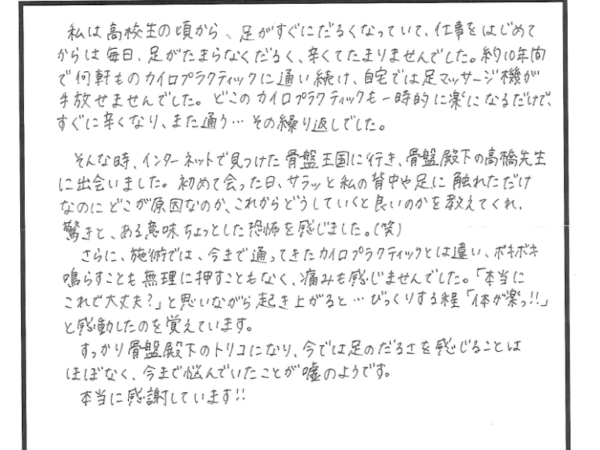 私は高校生の頃から、足がすぐにだるくなっていて、仕事をはじめて
からは毎日、足がたまらなくだるく、辛くてたまりませんでした。約10年間
で何軒ものカイロプラクティックに通い続け、自宅では足マッサージ機が
手放せませんでした。どこのカイロプラクティックも一時的に楽になるだけで、
すぐに辛くなり、また通う…その繰り返しでした。
そんな時、インターネットで見つけた骨盤王国に行き、骨盤殿下の高橋先生
に出会いました。初めて会った日、サラッと私の背中や足に触れただけ
なのにどこが原因なのか、これからどうしていくと良いのかを教えてくれ、
驚きと、ある意味ちょっとした恐怖を感じました。(笑)
さらに、施術では、今まで通ってきたカイロプラクティックとは違い、ボキボキ
鳴らすことも無理に押すこともなく、痛みも感じませんでした。「本当に
これで大丈夫?」と思いながら起き上がると…びっくりする程「体が楽っ!!」
と感動したのを覚えています。
すっかり骨盤殿下のトリコになり、今では足のだるさを感じることは
ほぼなく、今まで悩んでいたことが嘘のようです。
本当に感謝しています!!